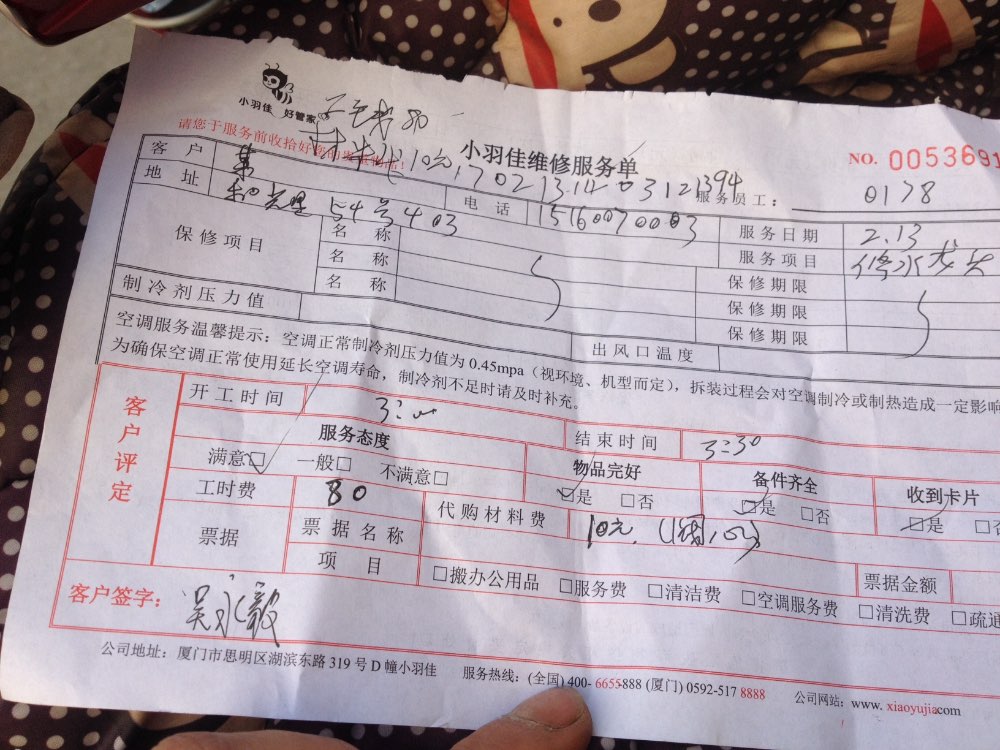 小羽佳 好管家
80
请您于服务前收拾好
小羽佳维修服务单
NO. 0053691
10元, 170213141203121394
服务员工: 0178
客户 吴
地址 54号403
电话 15160070003
服务日期 2.13
服务项目 修水龙头
保修项目
名称
名称
名称
保修期限
保修期限
保修期限
制冷剂压力值
出风口温度
空调服务温馨提示:空调正常制冷剂压力值为0.45mpa(视环境、机型而定),拆装过程会对空调制冷或制热造成一定影响
为确保空调正常使用延长空调寿命,制冷剂不足时请及时补充。
客户评定
开工时间
结束时间 3:30
服务态度
满意□ 一般□ 不满意□
物品完好
□是 □否
备件齐全
□是 □否
收到卡片
□是 □否
工时费 80
代购材料费 10元
票据
票据名称
项目
□搬办公用品 □服务费 □清洁费 □空调服务费 □清洗费 □疏通
票据金额
客户签字: 吴永毅
公司地址:厦门市思明区湖滨东路319号D幢小羽佳 服务热线:(全国)400-6655-888 (厦门)0592-517 8888 公司网站:www.xiaoyujia.com